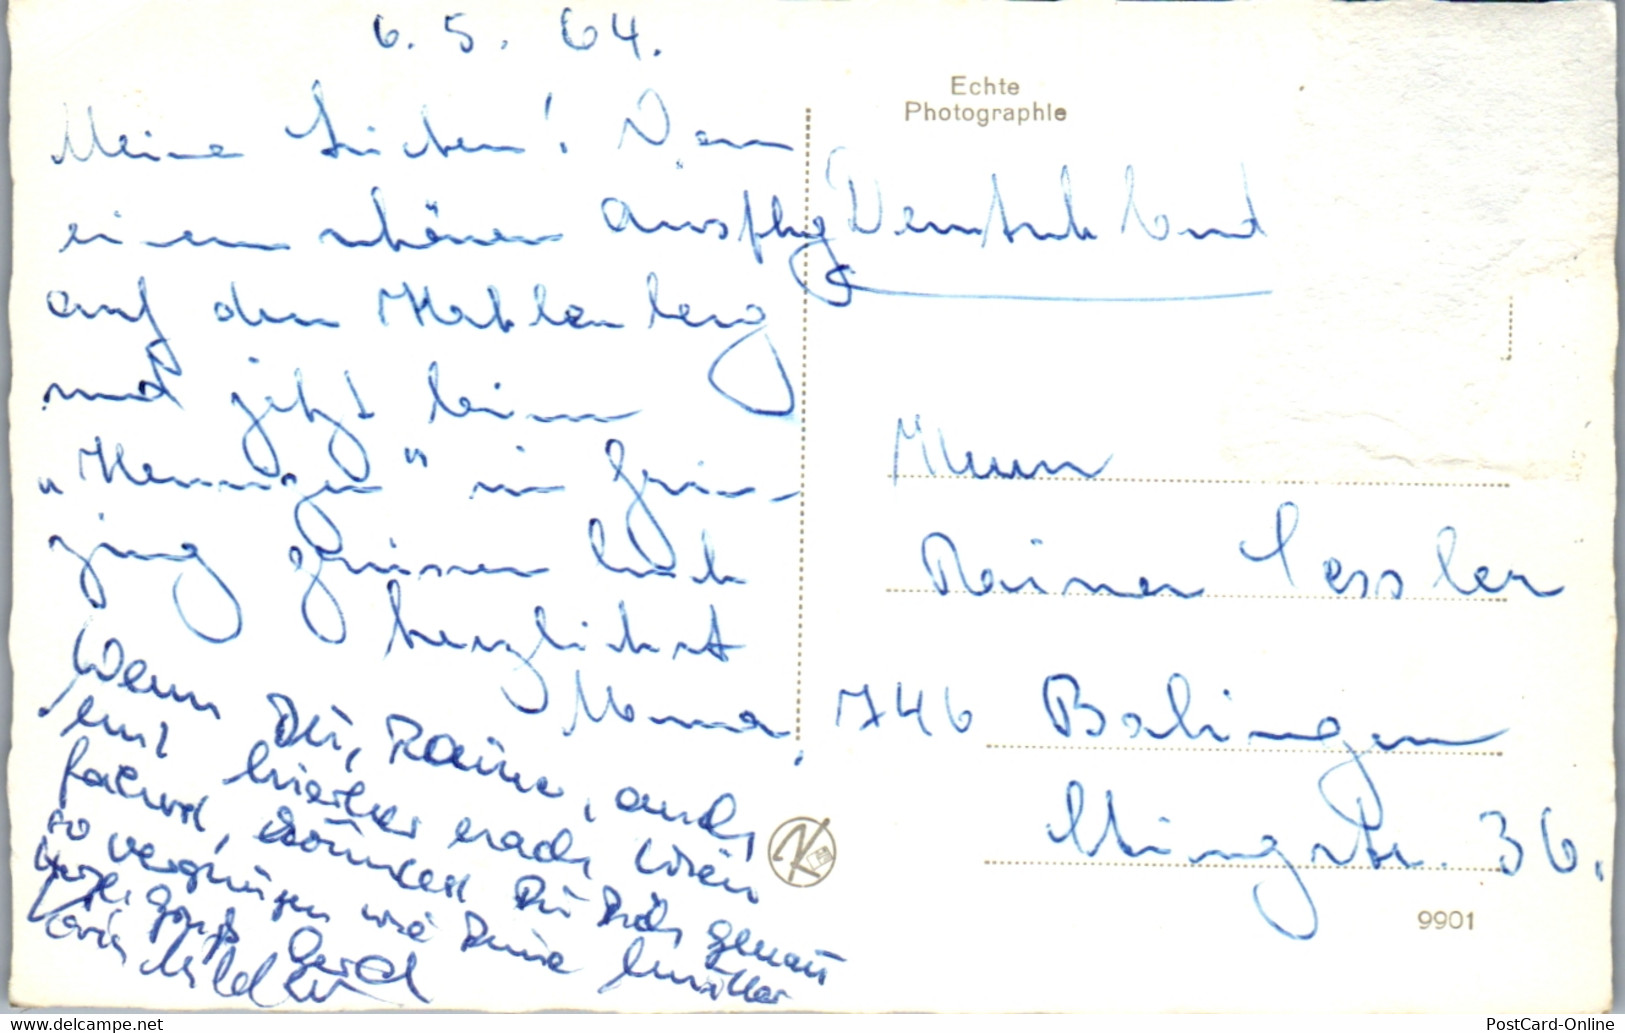 6. 5. 64.
Meine Lieben! Von
einem schönen Ausflug
auf den Kahlenberg
und jetzt beim
„Heurigen“ in Grin-
zing grüssen Euch
herzlichst
Mama,
Wenn Du, Rainer, auch
mit hierher nach Wien
fährst, könntest Du Dich genau
so vergnügen wie Deine Mutter
Herzl. Gruß Gerd
Echte
Photographie
Deutschland
Herrn
Rainer Sessler
746 Balingen
36.
9901
www.delcampe.net
PostCard-Online